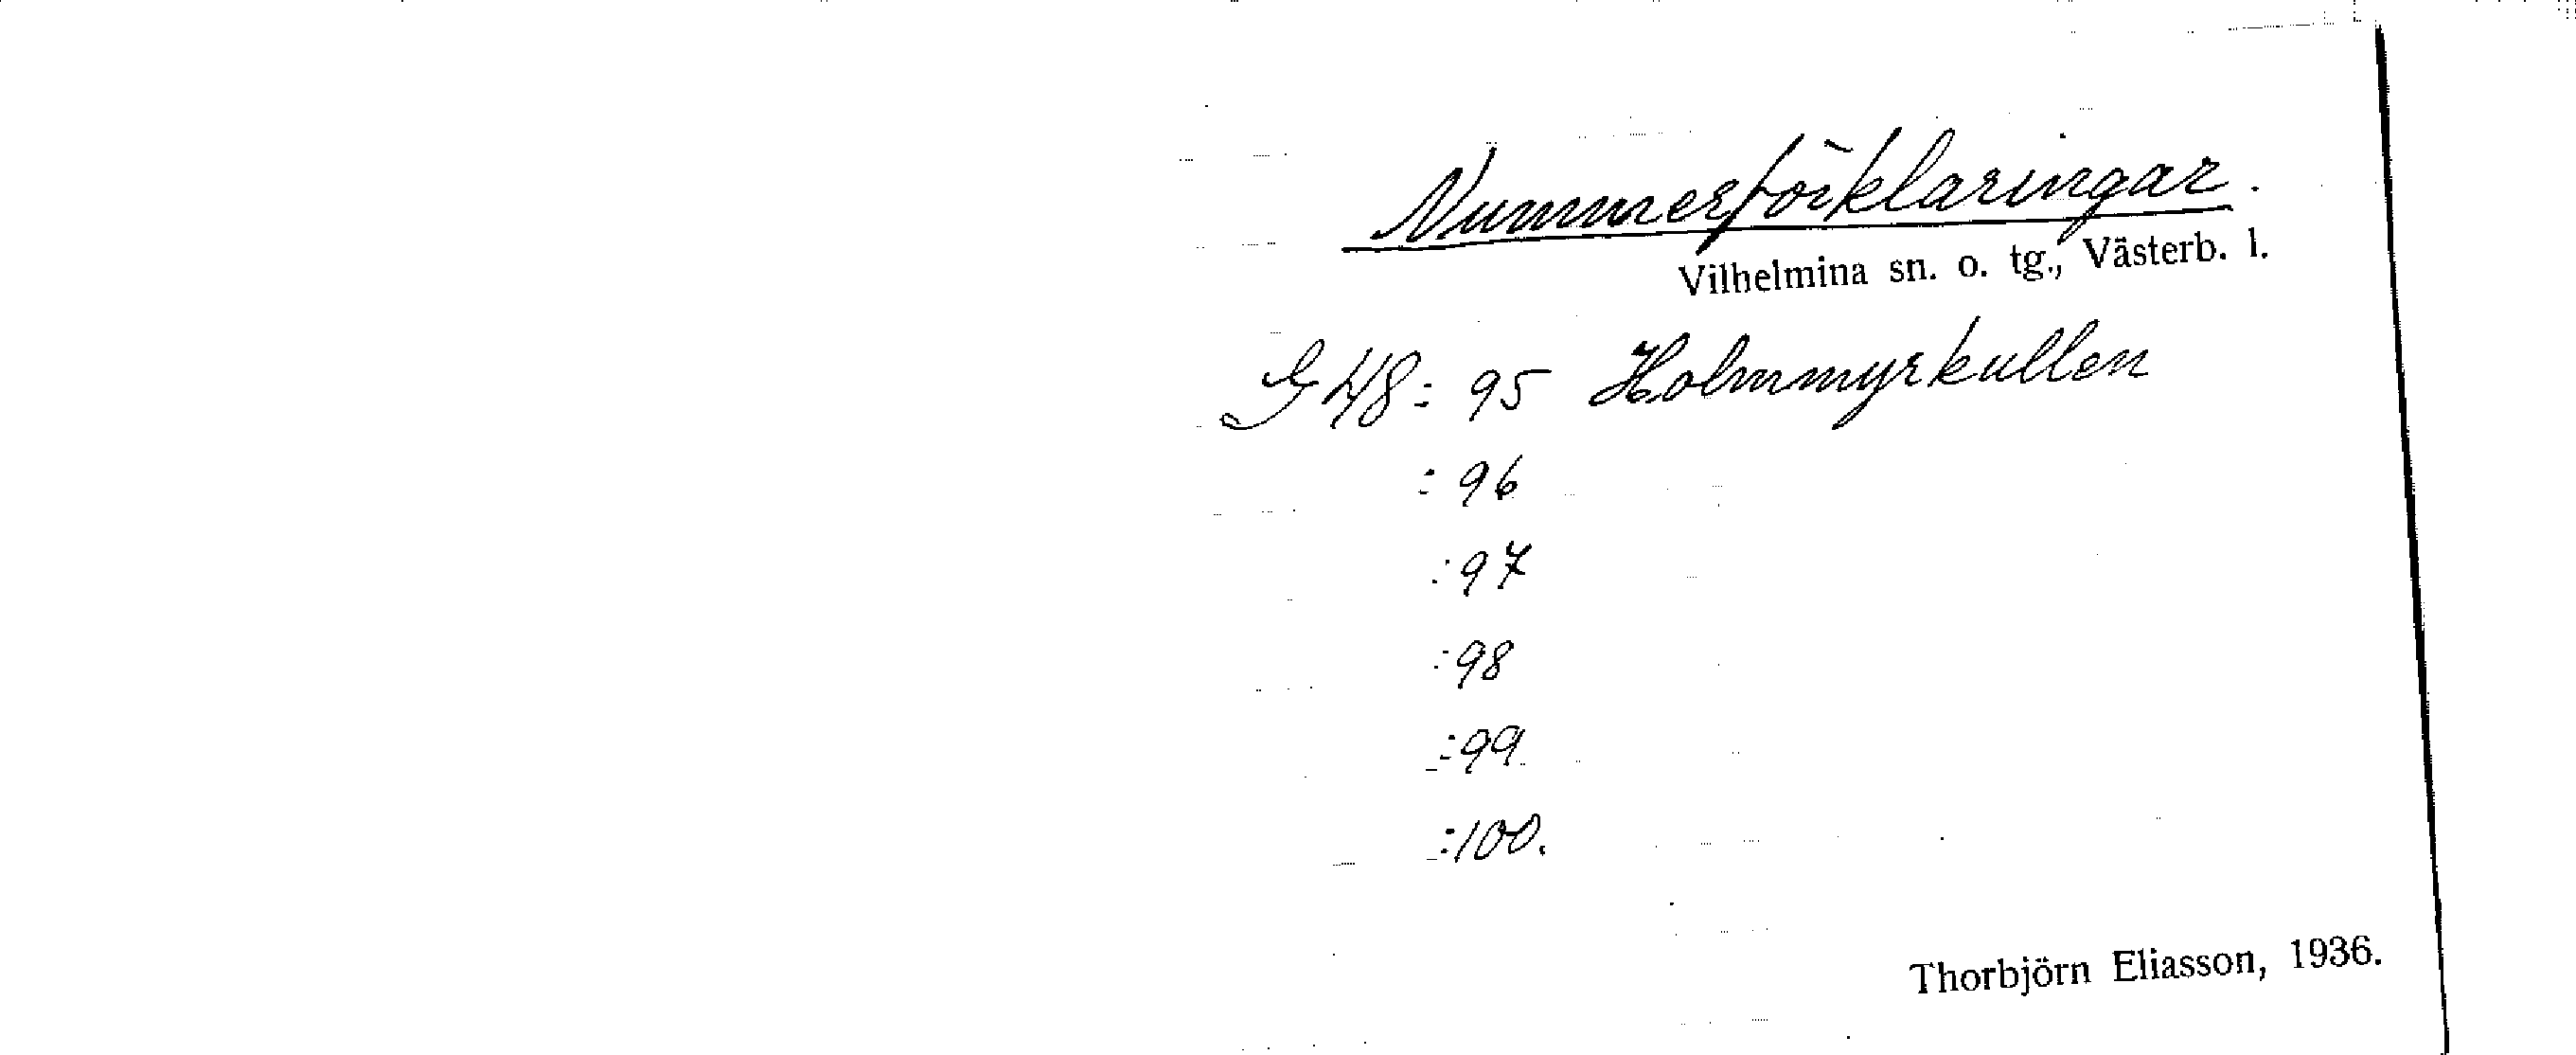 Nummerförklaringar.
Vilhelmina sn. o. tg., Västerb. l.
G 48: 95 Holmmyrkullen
: 96
: 97
: 98
: 99
: 100.
Thorbjörn Eliasson, 1936.